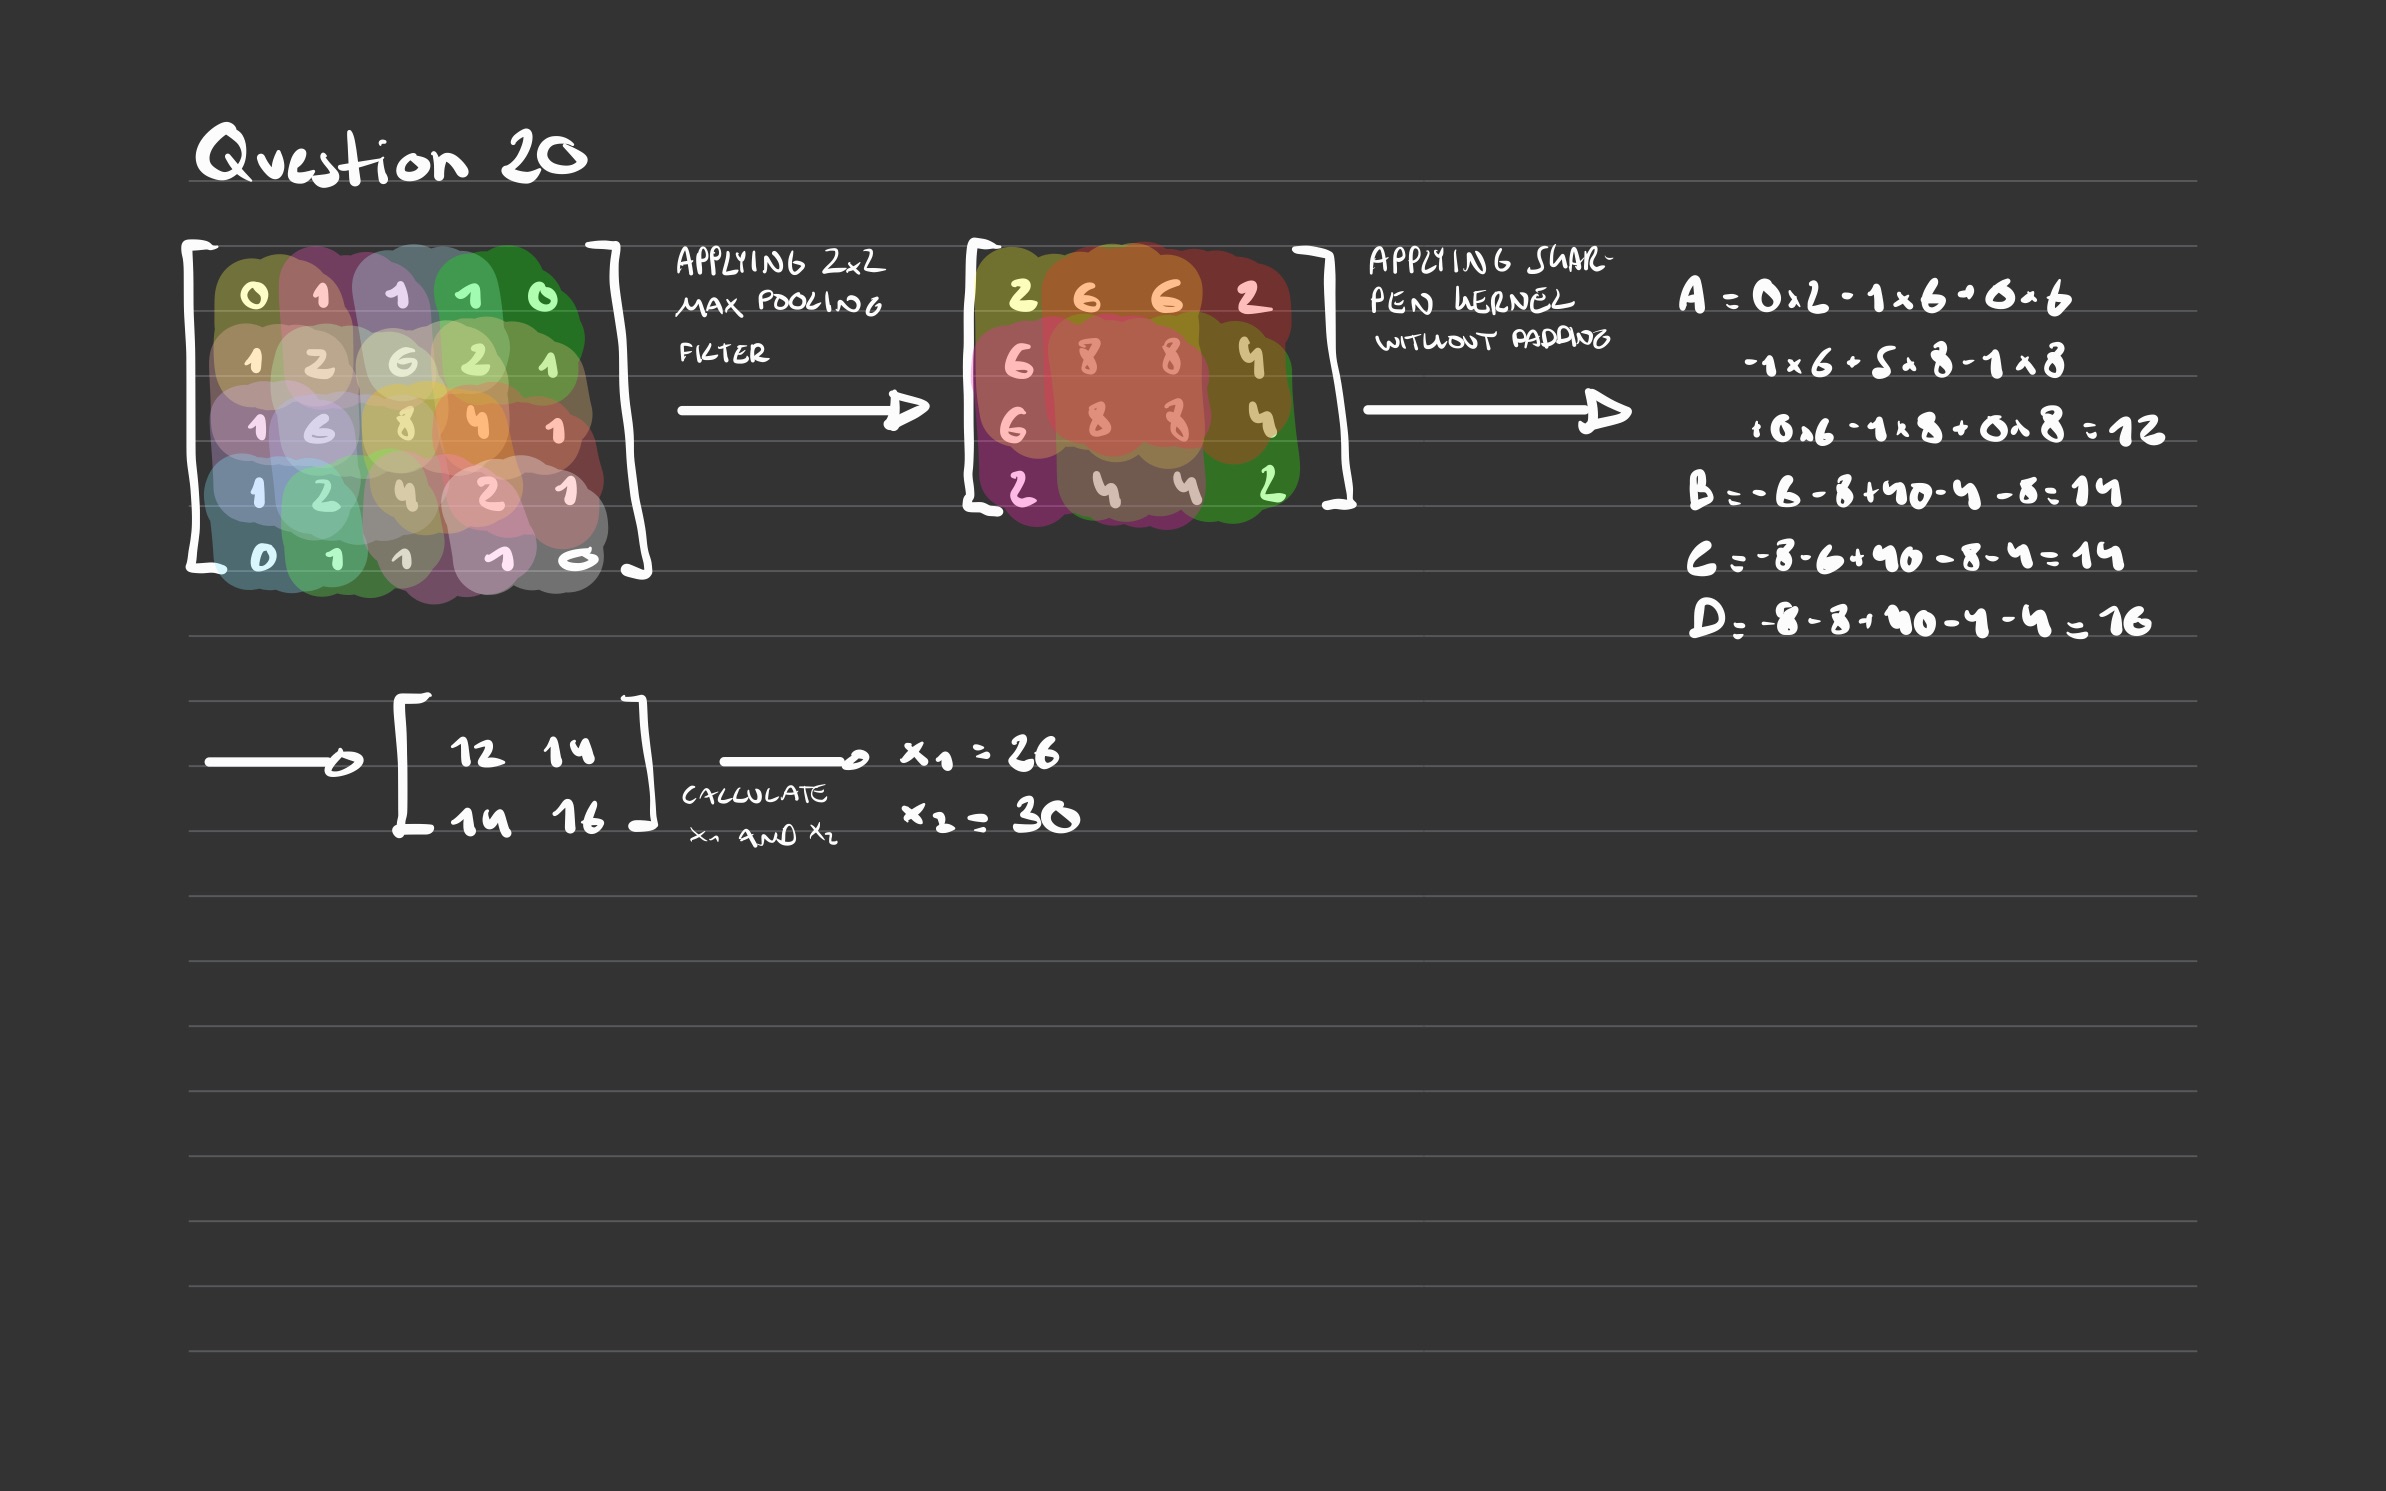 Question 20
0 1 1 1 0
1 2 6 2 1
1 6 8 4 1
1 2 4 2 1
0 1 1 1 0
APPLYING 2x2
MAX POOLING
FILTER
2 6 6 2
6 8 8 4
6 8 8 4
2 4 4 2
APPLYING SHAR-
PEN KERNEL
WITHOUT PADDING
A = 0 x 2 - 1 x 6 + 0 x 6
- 1 x 6 + 5 x 8 - 1 x 8
+ 0 x 6 - 1 x 8 + 0 x 8 = 12
B = - 6 - 8 + 40 - 4 - 8 = 14
C = - 8 - 6 + 40 - 8 - 4 = 14
D = - 8 - 8 + 40 - 4 - 4 = 16
12 14
14 16
CALCULATE
x1 AND x2
x1 = 26
x2 = 30